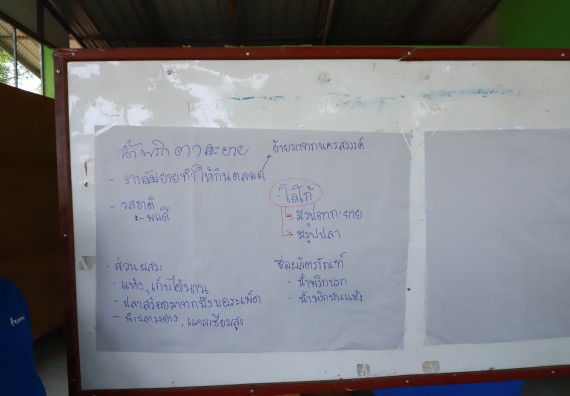 น้ำพริก ตา กะ ยาย
ย้ายมาจากนครสวรรค์
- ยายทำให้กินตลอด
- รสชาติ
พอดี
โลโก้
มีรูปตากะยาย
มีรูปปลา
- ส่วนผสม
- แห้ง, เก็บได้นาน
- ปลาสร้อยมาจากบึงบอระเพ็ด
- ปลาย่าง, แคลเซียมสูง
ชื่อผลิตภัณฑ์
- น้ำพริกนรก
- น้ำพริกป่นแห้ง